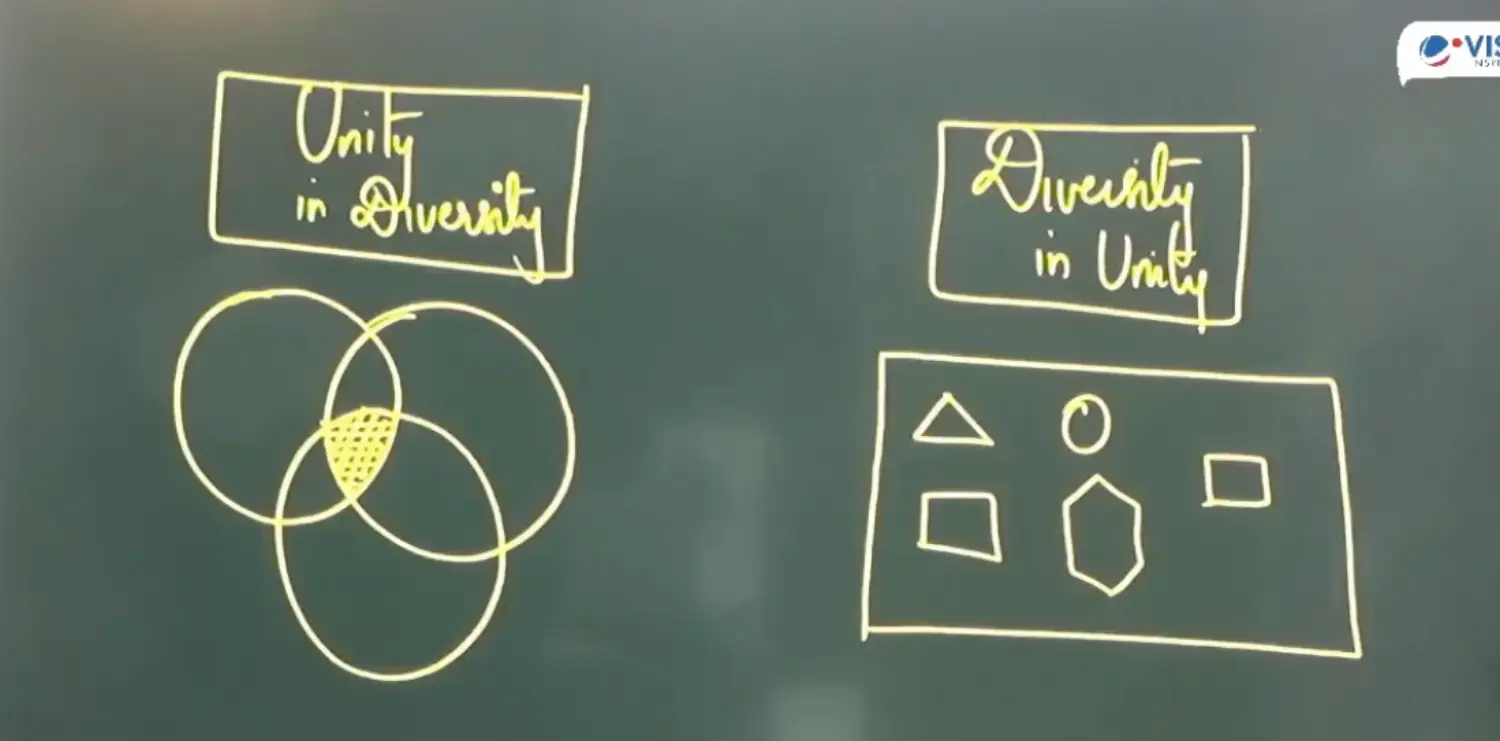 Unity
in Diversity
Diversity
in Unity
VIS
INSPI